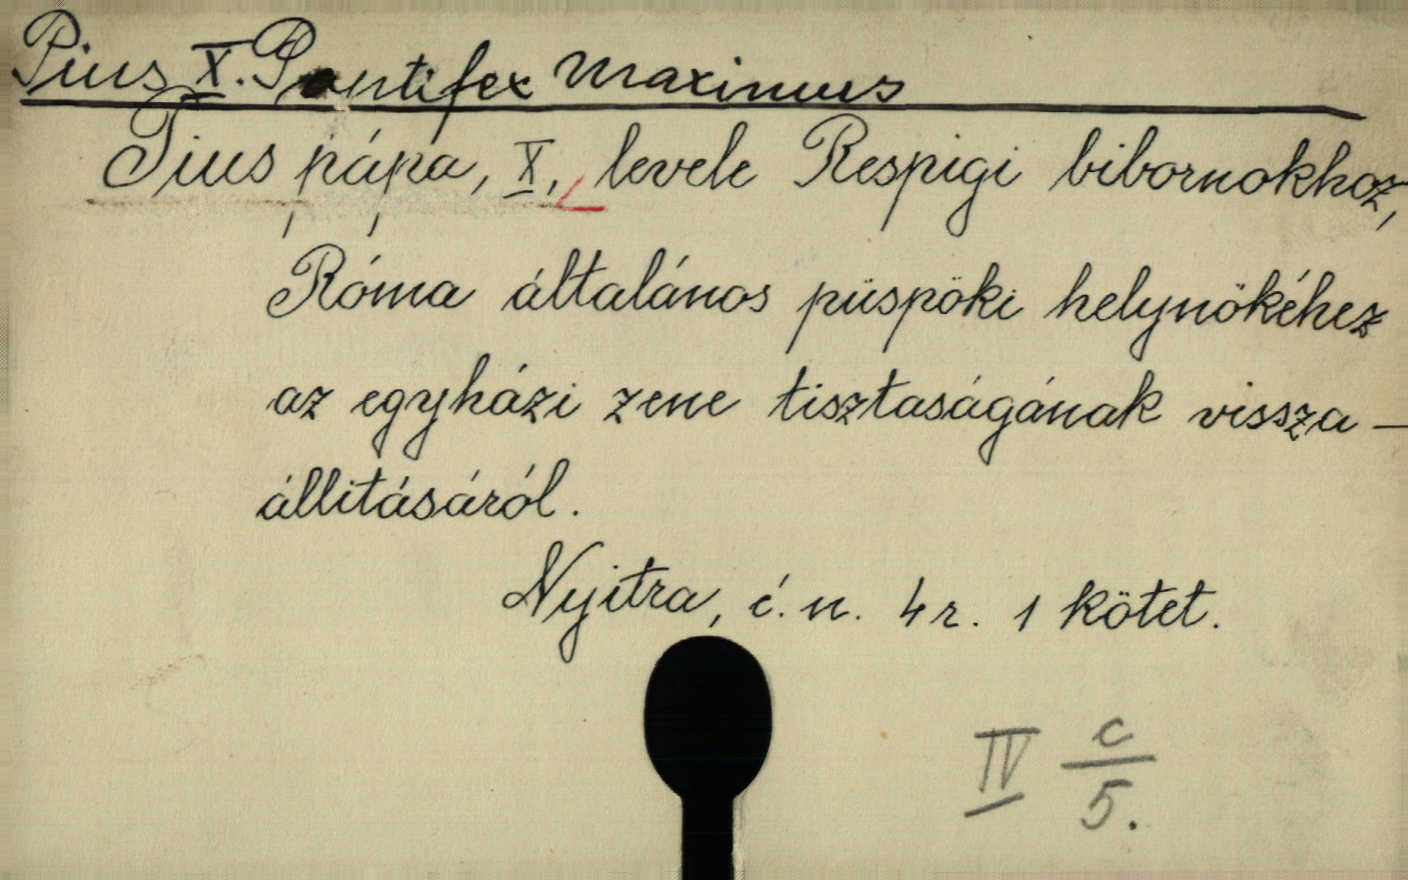 Pius X. Pontifex Maximus
Pius pápa, X, levele Respigi bibornokhoz,
Róma általános püspöki helynökéhez
az egyházi zene tisztaságának vissza-
állitásáról.
Nyitra, é.n. 4r. 1 kötet.
IV c/5.